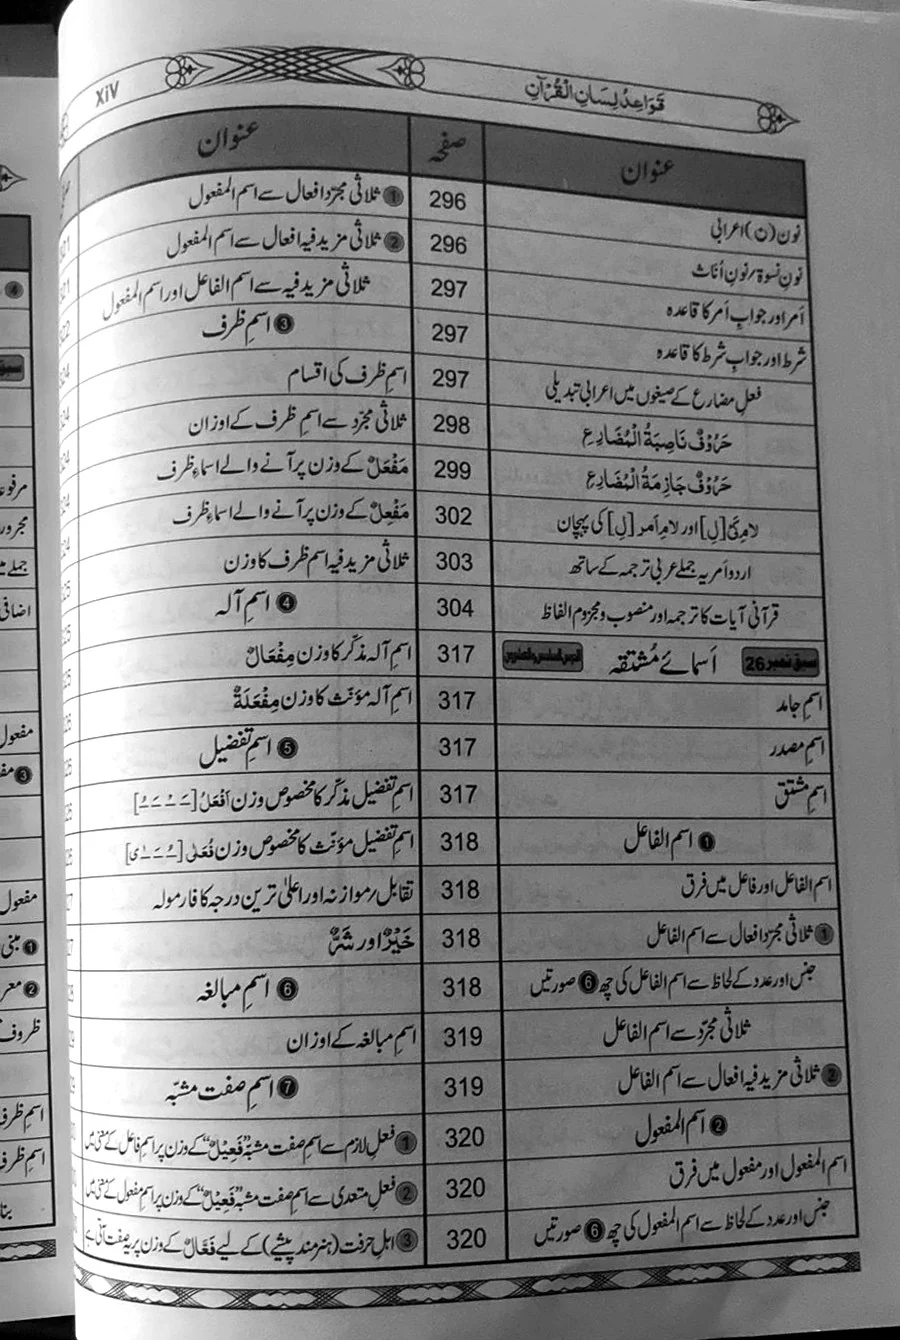 قَوَاعِدُ لِسَانِ الْقُرْآنِ
XiV
عنوان
صفحہ
عنوان
نون (ن) اعرابی 296
نونِ نسوۃ/نونِ اُناث 296
اَمر اور جوابِ اَمر کا قاعدہ 297
شرط اور جوابِ شرط کا قاعدہ 297
فعلِ مضارع کے صیغوں میں اعرابی تبدیلی 297
حَرُوْفٌ نَاصِبَۃُ الْمُضَارِعِ 298
حَرُوْفٌ جَازِمَۃُ الْمُضَارِعِ 299
لامِ کَیْ [لِ] اور لامِ اَمر [لِ] کی پہچان 302
اردو اَمریہ جملے عربی ترجمہ کے ساتھ 303
قرآنی آیات کا ترجمہ اور منصوب و مجزوم الفاظ 304
سبق نمبر 26 اَسمائے مُشتقہ 317
اسمِ جامد 317
اسمِ مصدر 317
اسمِ مشتق 317
❶ اسم الفاعل 318
اسم الفاعل اور فاعل میں فرق 318
❶ ثلاثی مجرّد افعال سے اسم الفاعل 318
جنس اور عدد کے لحاظ سے اسم الفاعل کی چھ ❻ صورتیں 318
ثلاثی مجرّد سے اسم الفاعل 319
❷ ثلاثی مزید فیہ افعال سے اسم الفاعل 319
❷ اسم المفعول 320
اسم المفعول اور مفعول میں فرق 320
جنس اور عدد کے لحاظ سے اسم المفعول کی چھ ❻ صورتیں 320
❶ ثلاثی مجرّد افعال سے اسم المفعول
❷ ثلاثی مزید فیہ افعال سے اسم المفعول
ثلاثی مزید فیہ سے اسم الفاعل اور اسم المفعول
❸ اسمِ ظرف
اسمِ ظرف کی اقسام
ثلاثی مجرّد سے اسمِ ظرف کے اوزان
مَفْعَلٌ کے وزن پر آنے والے اسماءِ ظرف
مَفْعِلٌ کے وزن پر آنے والے اسماءِ ظرف
ثلاثی مزید فیہ اسم ظرف کا وزن
❹ اسمِ آلہ
اسمِ آلہ مذکّر کا وزن مِفْعَالٌ
اسمِ آلہ مؤنّث کا وزن مِفْعَلَةٌ
❺ اسمِ تفضیل
اسمِ تفضیل مذکّر کا مخصوص وزن اَفْعَلُ
اسمِ تفضیل مؤنّث کا مخصوص وزن فُعْلٰی
تقابل/موازنہ اور اعلیٰ ترین درجہ کا فارمولہ
خَیْرٌ اور شَرٌّ
❻ اسمِ مبالغہ
اسمِ مبالغہ کے اوزان
❼ اسمِ صفت مشبّہ
❶ فعلِ لازم سے اسمِ صفت مشبّہ ”فَعِیْلٌ“ کے وزن پر اسمِ فاعل کے معنی میں
❷ فعلِ متعدی سے اسمِ صفت مشبّہ ”فَعِیْلٌ“ کے وزن پر اسمِ مفعول کے معنی میں
❸ اہلِ حرفت (ہنرمند پیشے) کے لیے فَعَّالٌ کے وزن پر یہ صفت آتی ہے